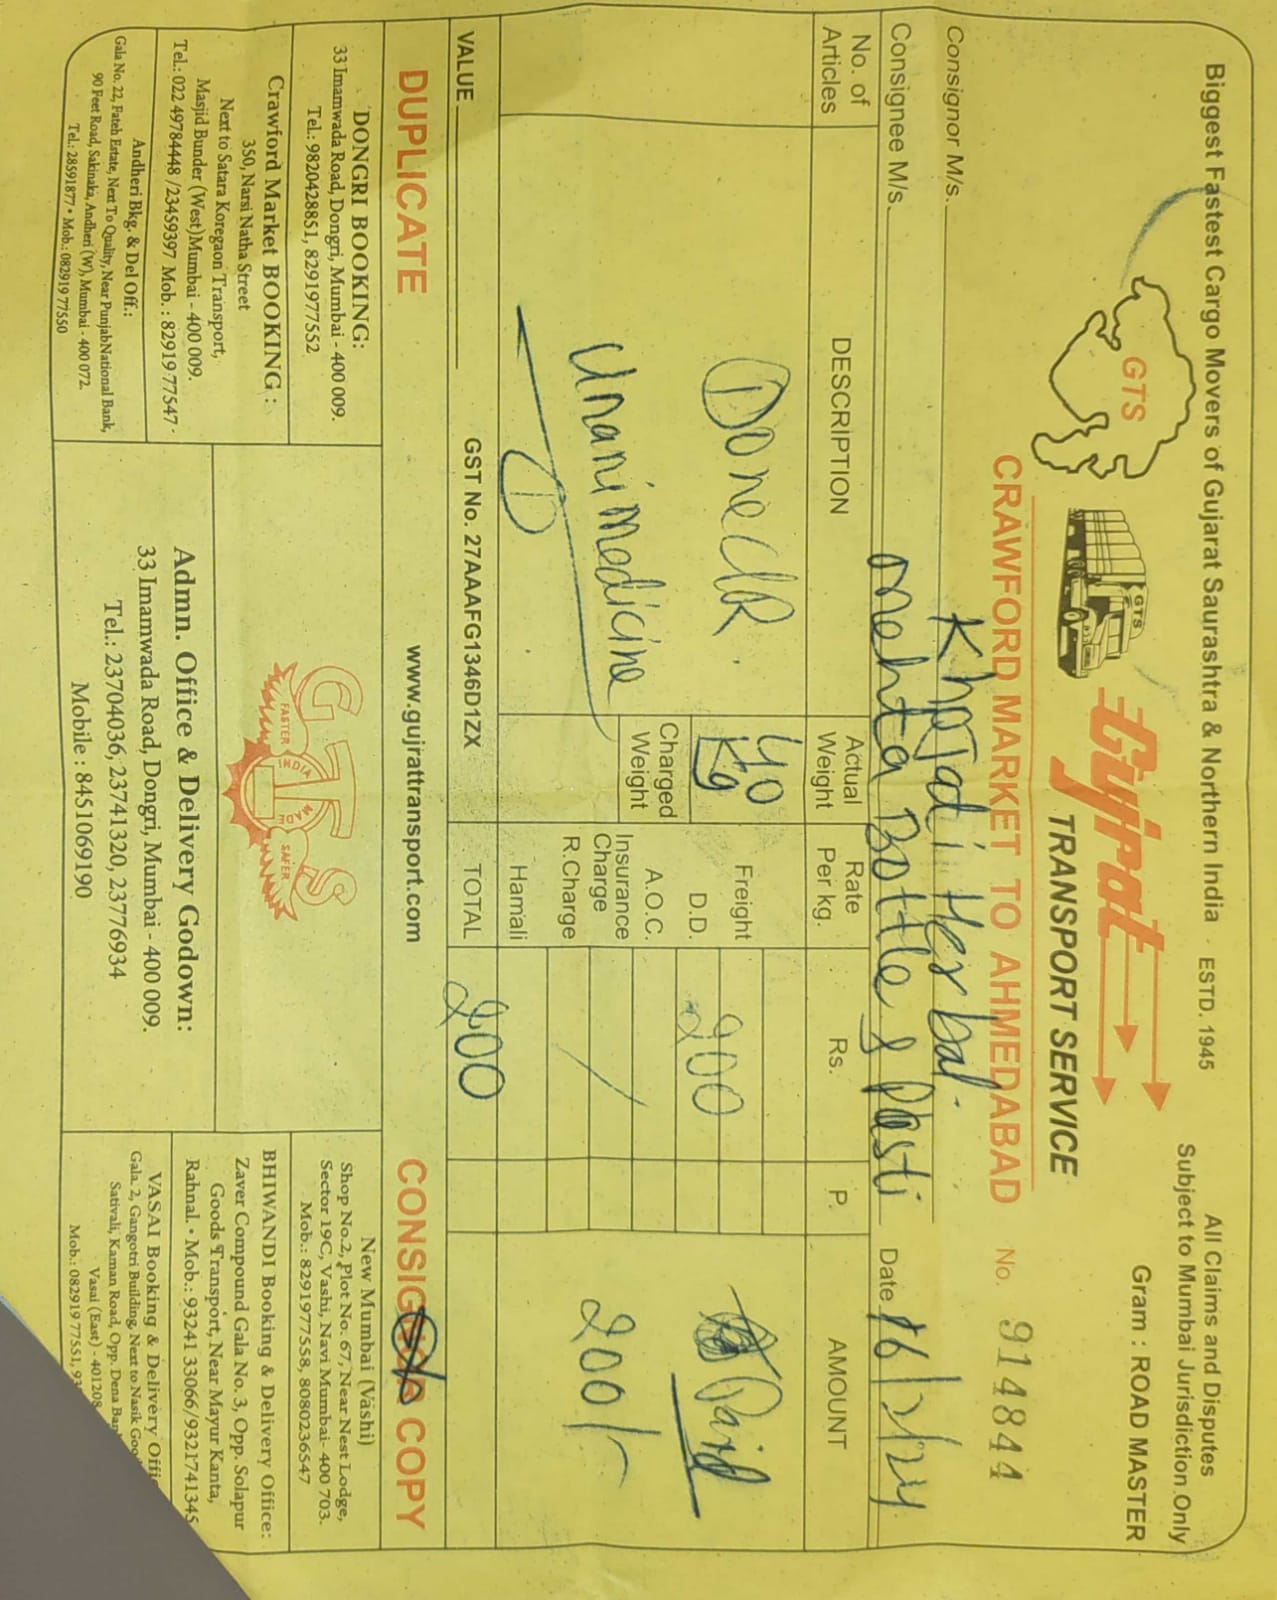 Biggest Fastest Cargo Movers of Gujarat Saurashtra & Northern India ESTD. 1945
All Claims and Disputes
Subject to Mumbai Jurisdiction Only
Gram : ROAD MASTER
GTS
GTS
Gujrat
TRANSPORT SERVICE
CRAWFORD MARKET TO AHMEDABAD No. 914844
Consignor M/s. Khojati Herbal.
Consignee M/s. mehta Bottle & Plasti Date 16/2/24
No. of Articles
DESCRIPTION
Actual Weight
Rate Per kg.
Rs.
P.
AMOUNT
Done
40 Kg
Freight 200
Paid
D.D.
Unani medicine
Charged Weight
A.O.C.
200/-
Insurance Charge
R.Charge
Hamali
VALUE
GST No. 27AAAFG1346D1ZX
TOTAL 200
DUPLICATE
www.gujrattransport.com
COPY
DONGRI BOOKING:
33 Imamwada Road, Dongri, Mumbai - 400 009.
Tel.: 9820428851, 8291977552
Crawford Market BOOKING :
350, Narsi Natha Street
Next to Satara Koregaon Transport,
Masjid Bunder (West)Mumbai - 400 009.
Tel.: 022 49784448 /23459397 Mob. : 82919 77547
Andheri Bkg. & Del Off.:
Gala No. 22, Fateh Estate, Next To Quality, Near PunjabNational Bank,
90 Feet Road, Sakinaka, Andheri (W), Mumbai - 400 072.
Tel.: 28591877 • Mob.: 082919 77550
GTS
FASTER
SAFER
INDIA
MADE
Admn. Office & Delivery Godown:
33 Imamwada Road, Dongri, Mumbai - 400 009.
Tel.: 23704036, 23741320, 23776934
Mobile : 8451069190
New Mumbai (Vashi)
Shop No.2, Plot No. 67, Near Nest Lodge,
Sector 19C, Vashi, Navi Mumbai- 400 703.
Mob.: 8291977558, 8080236547
BHIWANDI Booking & Delivery Office:
Zaver Compound Gala No. 3, Opp. Solapur
Goods Transport, Near Mayur Kanta,
Rahnal. • Mob.: 93241 33066/9321741345
VASAI Booking & Delivery
Gala. 2, Gangotri Building, Next to Nasik
Sativali, Kaman Road, Opp. Dena
Vasai (East) - 401208
Mob.: 082919 77551,